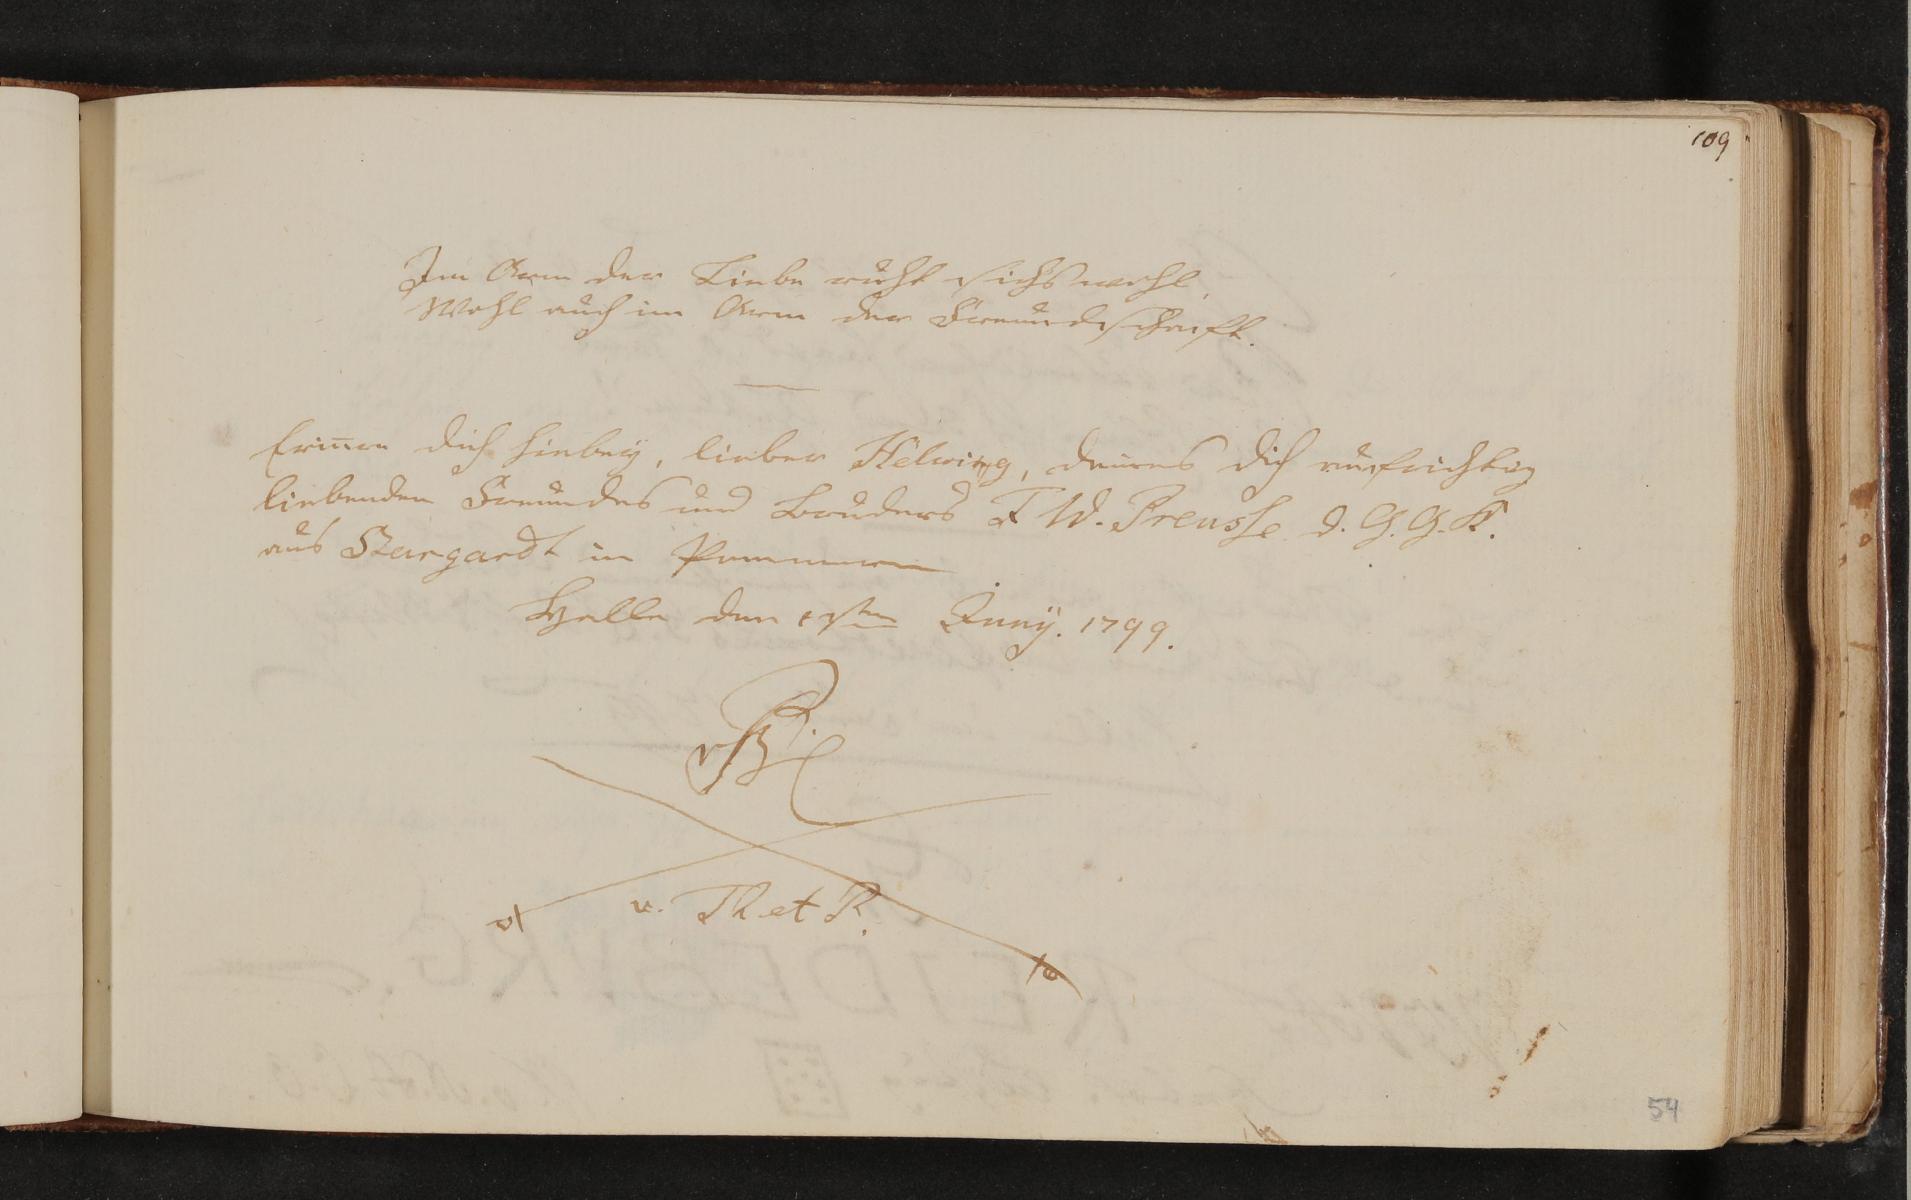 109
Im Arm der Liebe ruht sichs wohl,
Wohl auch im Arm der Freundschaft.
Erin̄re dich hiebey, lieber Helwing, deines dich aufrichtig
liebenden Freundes und Bruders F W. Preusse d. G. G. K.
aus Stargardt in Pommern
Halle den Juny. 1799.
v. R et R.
54